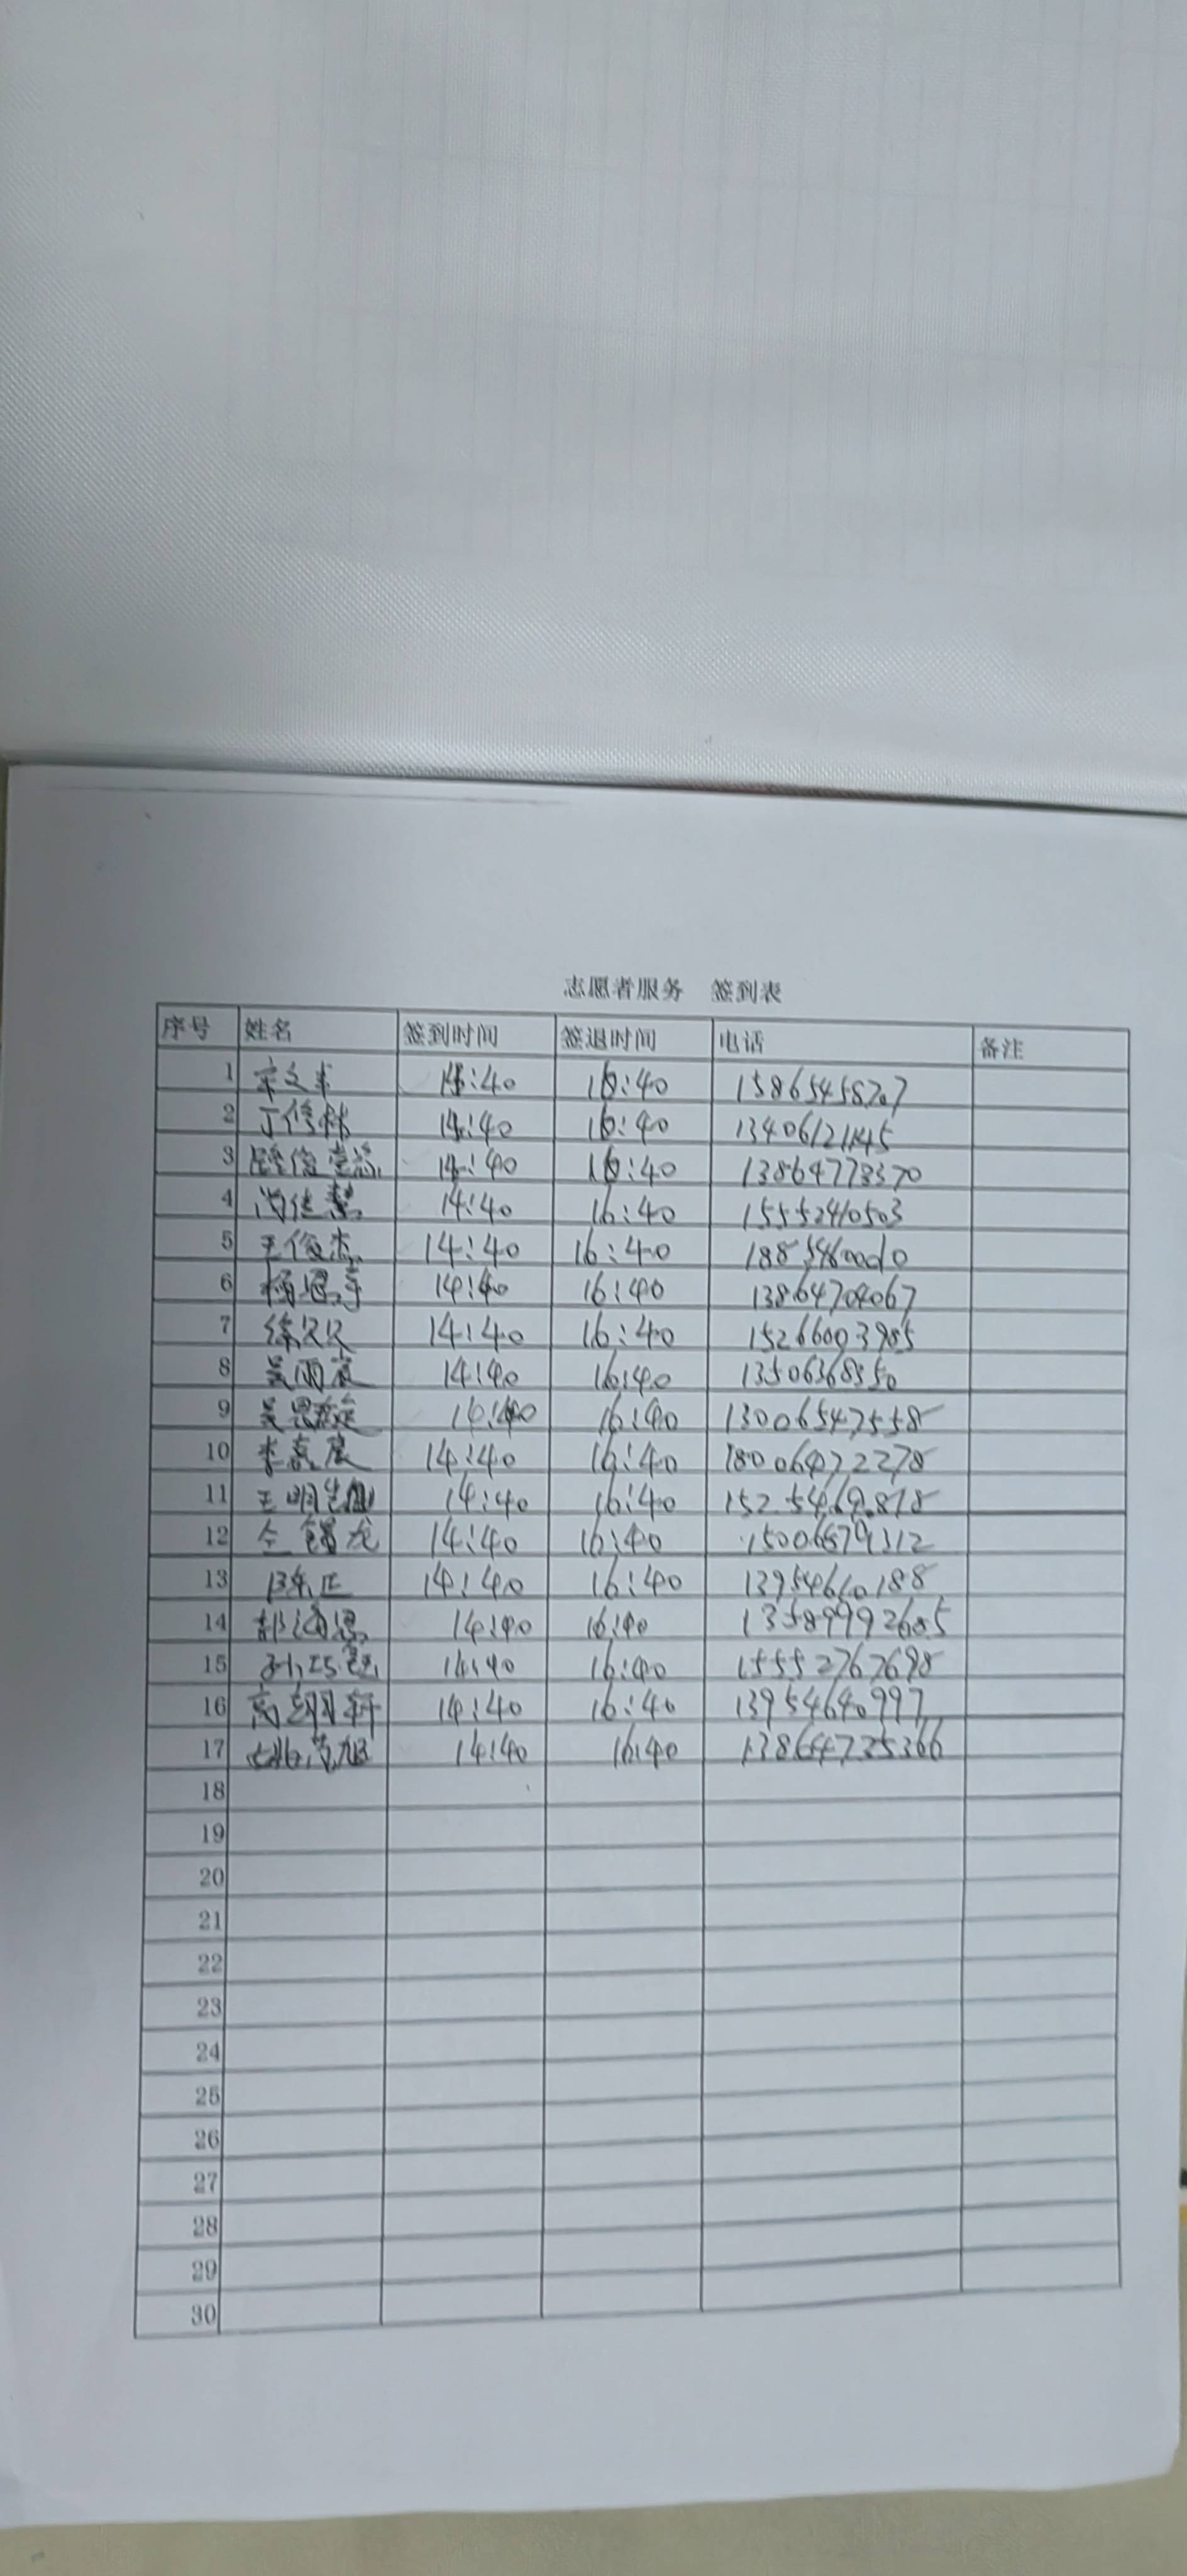 志愿者服务 签到表
序号 姓名 签到时间 签退时间 电话 备注
1 宋文丰 14:40 16:40 15865458707
2 丁修林 14:40 16:40 13406121145
3 14:40 16:40 13864773370
4 14:40 16:40 15552410503
5 王俊杰 14:40 16:40
6 杨恩予 14:40 16:40 13864704067
7 14:40 16:40 15266003985
8 吴雨宸 14:40 16:40 13506368350
9 14:40 16:40 13006547558
10 李嘉宸 14:40 16:40 18006472278
11 14:40 16:40 15254669818
12 14:40 16:40 15006879312
13 陈正 14:40 16:40 13954610188
14 14:40 16:40 13589992685
15 14:40 16:40 15552767698
16 高翊轩 14:40 16:40 13954640997
17 14:40 16:40
18
19
20
21
22
23
24
25
26
27
28
29
30